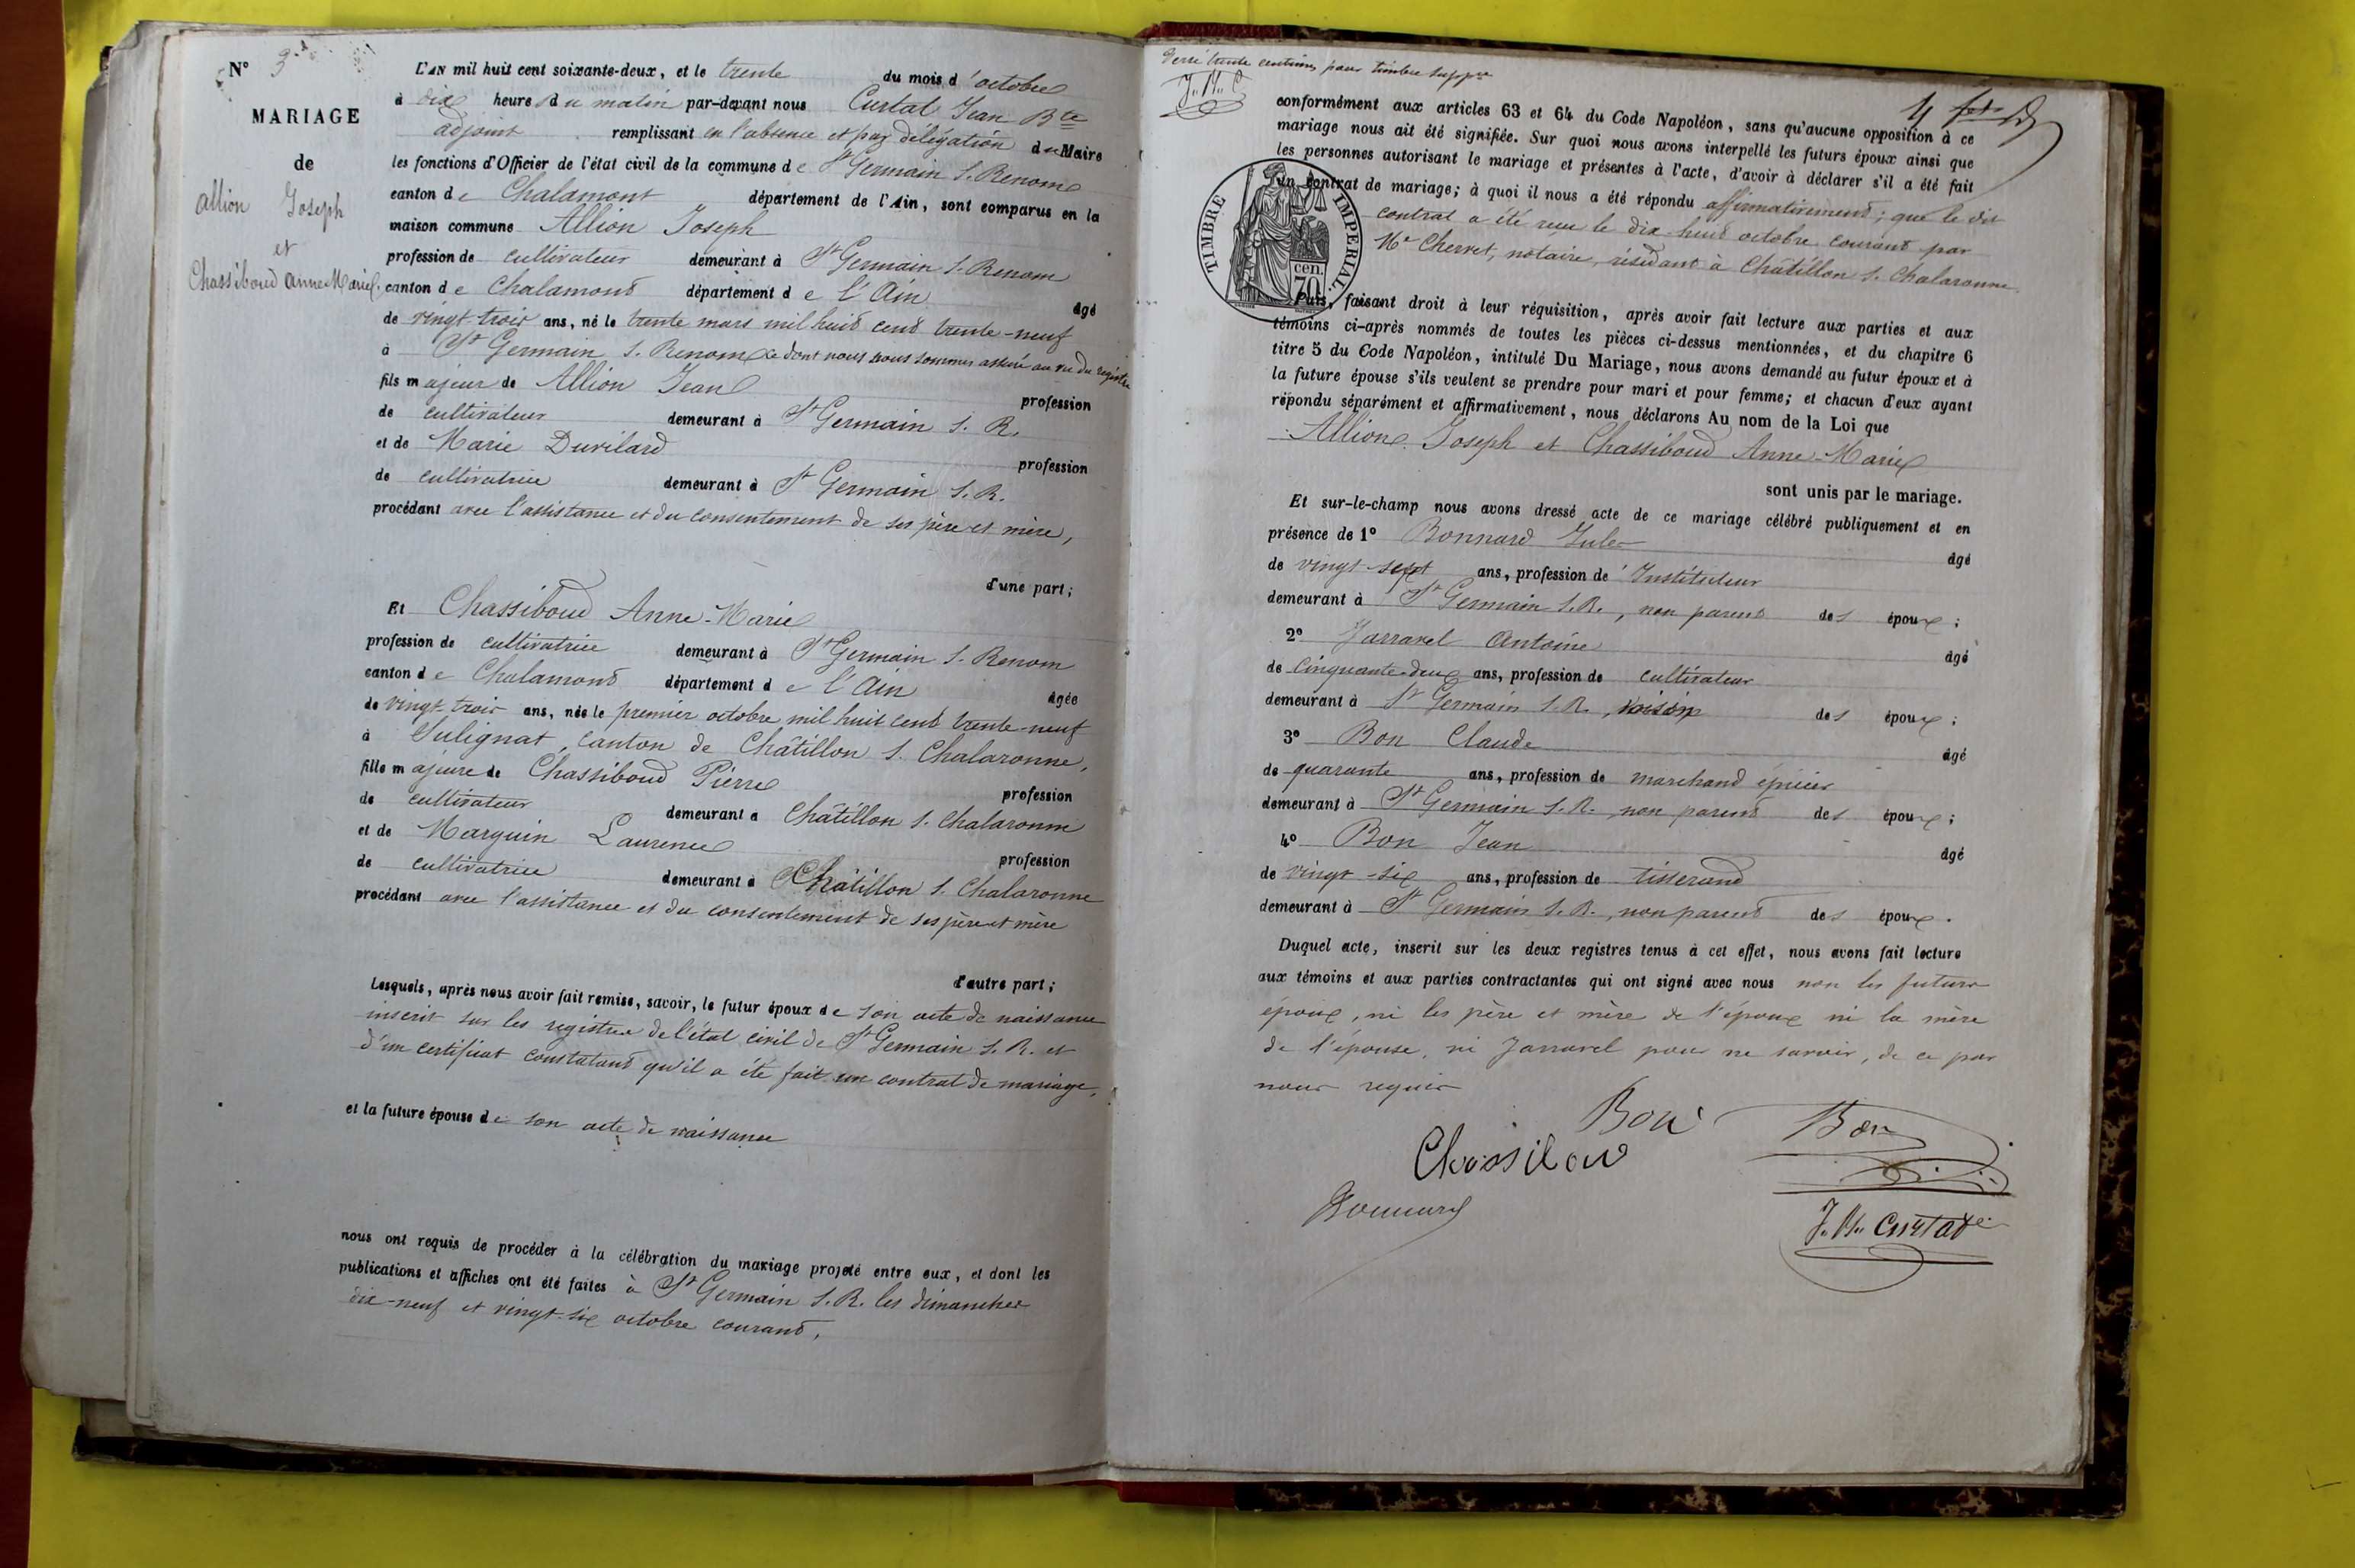 N° 3
MARIAGE
de
Allion Joseph
et
Chassiboud Anne Marie
L'AN mil huit cent soixante-deux, et le trente du mois d'octobre
à dix heures du matin par-devant nous Curtat Jean Bte
adjoint remplissant en l'absence et par délégation du Maire
les fonctions d'Officier de l'état civil de la commune de St Germain S. Renom
canton de Chalamont département de l'Ain, sont comparus en la
maison commune Allion Joseph
profession de cultivateur demeurant à St Germain S. Renom
canton de Chalamont département de l'Ain âgé
de vingt-trois ans, né le trente mars mil huit cent trente-neuf
à St Germain S. Renom ce dont nous nous sommes assuré au vu du registre
fils majeur de Allion Jean profession
de cultivateur demeurant à St Germain S. R.
et de Marie Duvilard profession
de cultivatrice demeurant à St Germain S. R.
procédant avec l'assistance et du consentement de ses père et mère,
d'une part;
Et Chassiboud Anne-Marie
profession de cultivatrice demeurant à St Germain S. Renom
canton de Chalamont département de l'Ain âgée
de vingt-trois ans, née le premier octobre mil huit cent trente-neuf
à Sulignat, canton de Châtillon S. Chalaronne,
fille majeure de Chassiboud Pierre profession
de cultivateur demeurant à Châtillon S. Chalaronne
et de Marguin Laurence profession
de cultivatrice demeurant à Châtillon S. Chalaronne
procédant avec l'assistance et du consentement de ses père et mère
d'autre part;
Lesquels, après nous avoir fait remise, savoir, le futur époux de son acte de naissance
inscrit sur les registres de l'état civil de St Germain S. R. et
d'un certificat constatant qu'il a été fait un contrat de mariage,
et la future épouse de son acte de naissance
nous ont requis de procéder à la célébration du mariage projeté entre eux, et dont les
publications et affiches ont été faites à St Germain S. R. les dimanches
dix-neuf et vingt-six octobre courant,
Versé trente centimes pour timbre suppre
J. B. C
4
conformément aux articles 63 et 64 du Code Napoléon, sans qu'aucune opposition à ce
mariage nous ait été signifiée. Sur quoi nous avons interpellé les futurs époux ainsi que
les personnes autorisant le mariage et présentes à l'acte, d'avoir à déclarer s'il a été fait
un contrat de mariage; à quoi il nous a été répondu affirmativement; que le dit
contrat a été reçu le dix-huit octobre courant par
Me Cherret, notaire, résidant à Châtillon S. Chalaronne
TIMBRE IMPERIAL
cen.
70
Puis, faisant droit à leur réquisition, après avoir fait lecture aux parties et aux
témoins ci-après nommés de toutes les pièces ci-dessus mentionnées, et du chapitre 6
titre 5 du Code Napoléon, intitulé Du Mariage, nous avons demandé au futur époux et à
la future épouse s'ils veulent se prendre pour mari et pour femme; et chacun d'eux ayant
répondu séparément et affirmativement, nous déclarons Au nom de la Loi que
Allion Joseph et Chassiboud Anne-Marie
sont unis par le mariage.
Et sur-le-champ nous avons dressé acte de ce mariage célébré publiquement et en
présence de 1° Bonnard Jules âgé
de vingt-sept ans, profession de Instituteur
demeurant à St Germain S. R., non parent des époux;
2° Jarravel Antoine âgé
de cinquante-deux ans, profession de cultivateur
demeurant à St Germain S. R., voisin des époux;
3° Bon Claude âgé
de quarante ans, profession de marchand épicier
demeurant à St Germain S. R., non parent des époux;
4° Bon Jean âgé
de vingt-six ans, profession de tisserand
demeurant à St Germain S. R., non parent des époux.
Duquel acte, inscrit sur les deux registres tenus à cet effet, nous avons fait lecture
aux témoins et aux parties contractantes qui ont signé avec nous non les futurs
époux, ni les père et mère de l'époux ni la mère
de l'épouse, ni Jarravel pour ne savoir, de ce par
nous requis
Bon Bon
Chassibou
Bonnard
J. B. Curtat